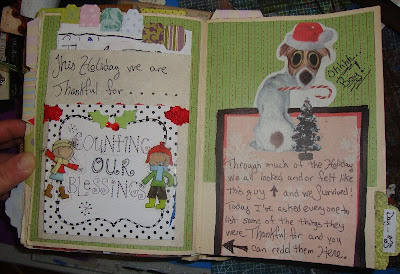 This Holiday we are
Thankful for
COUNTING
OUR
BLESSINGS
Through much of the Holiday
we all looked and/or felt like
this guy ↑ and we Survived!
Today I've asked everyone to
list some of the things they
were Thankful for and you
can redd them Here..